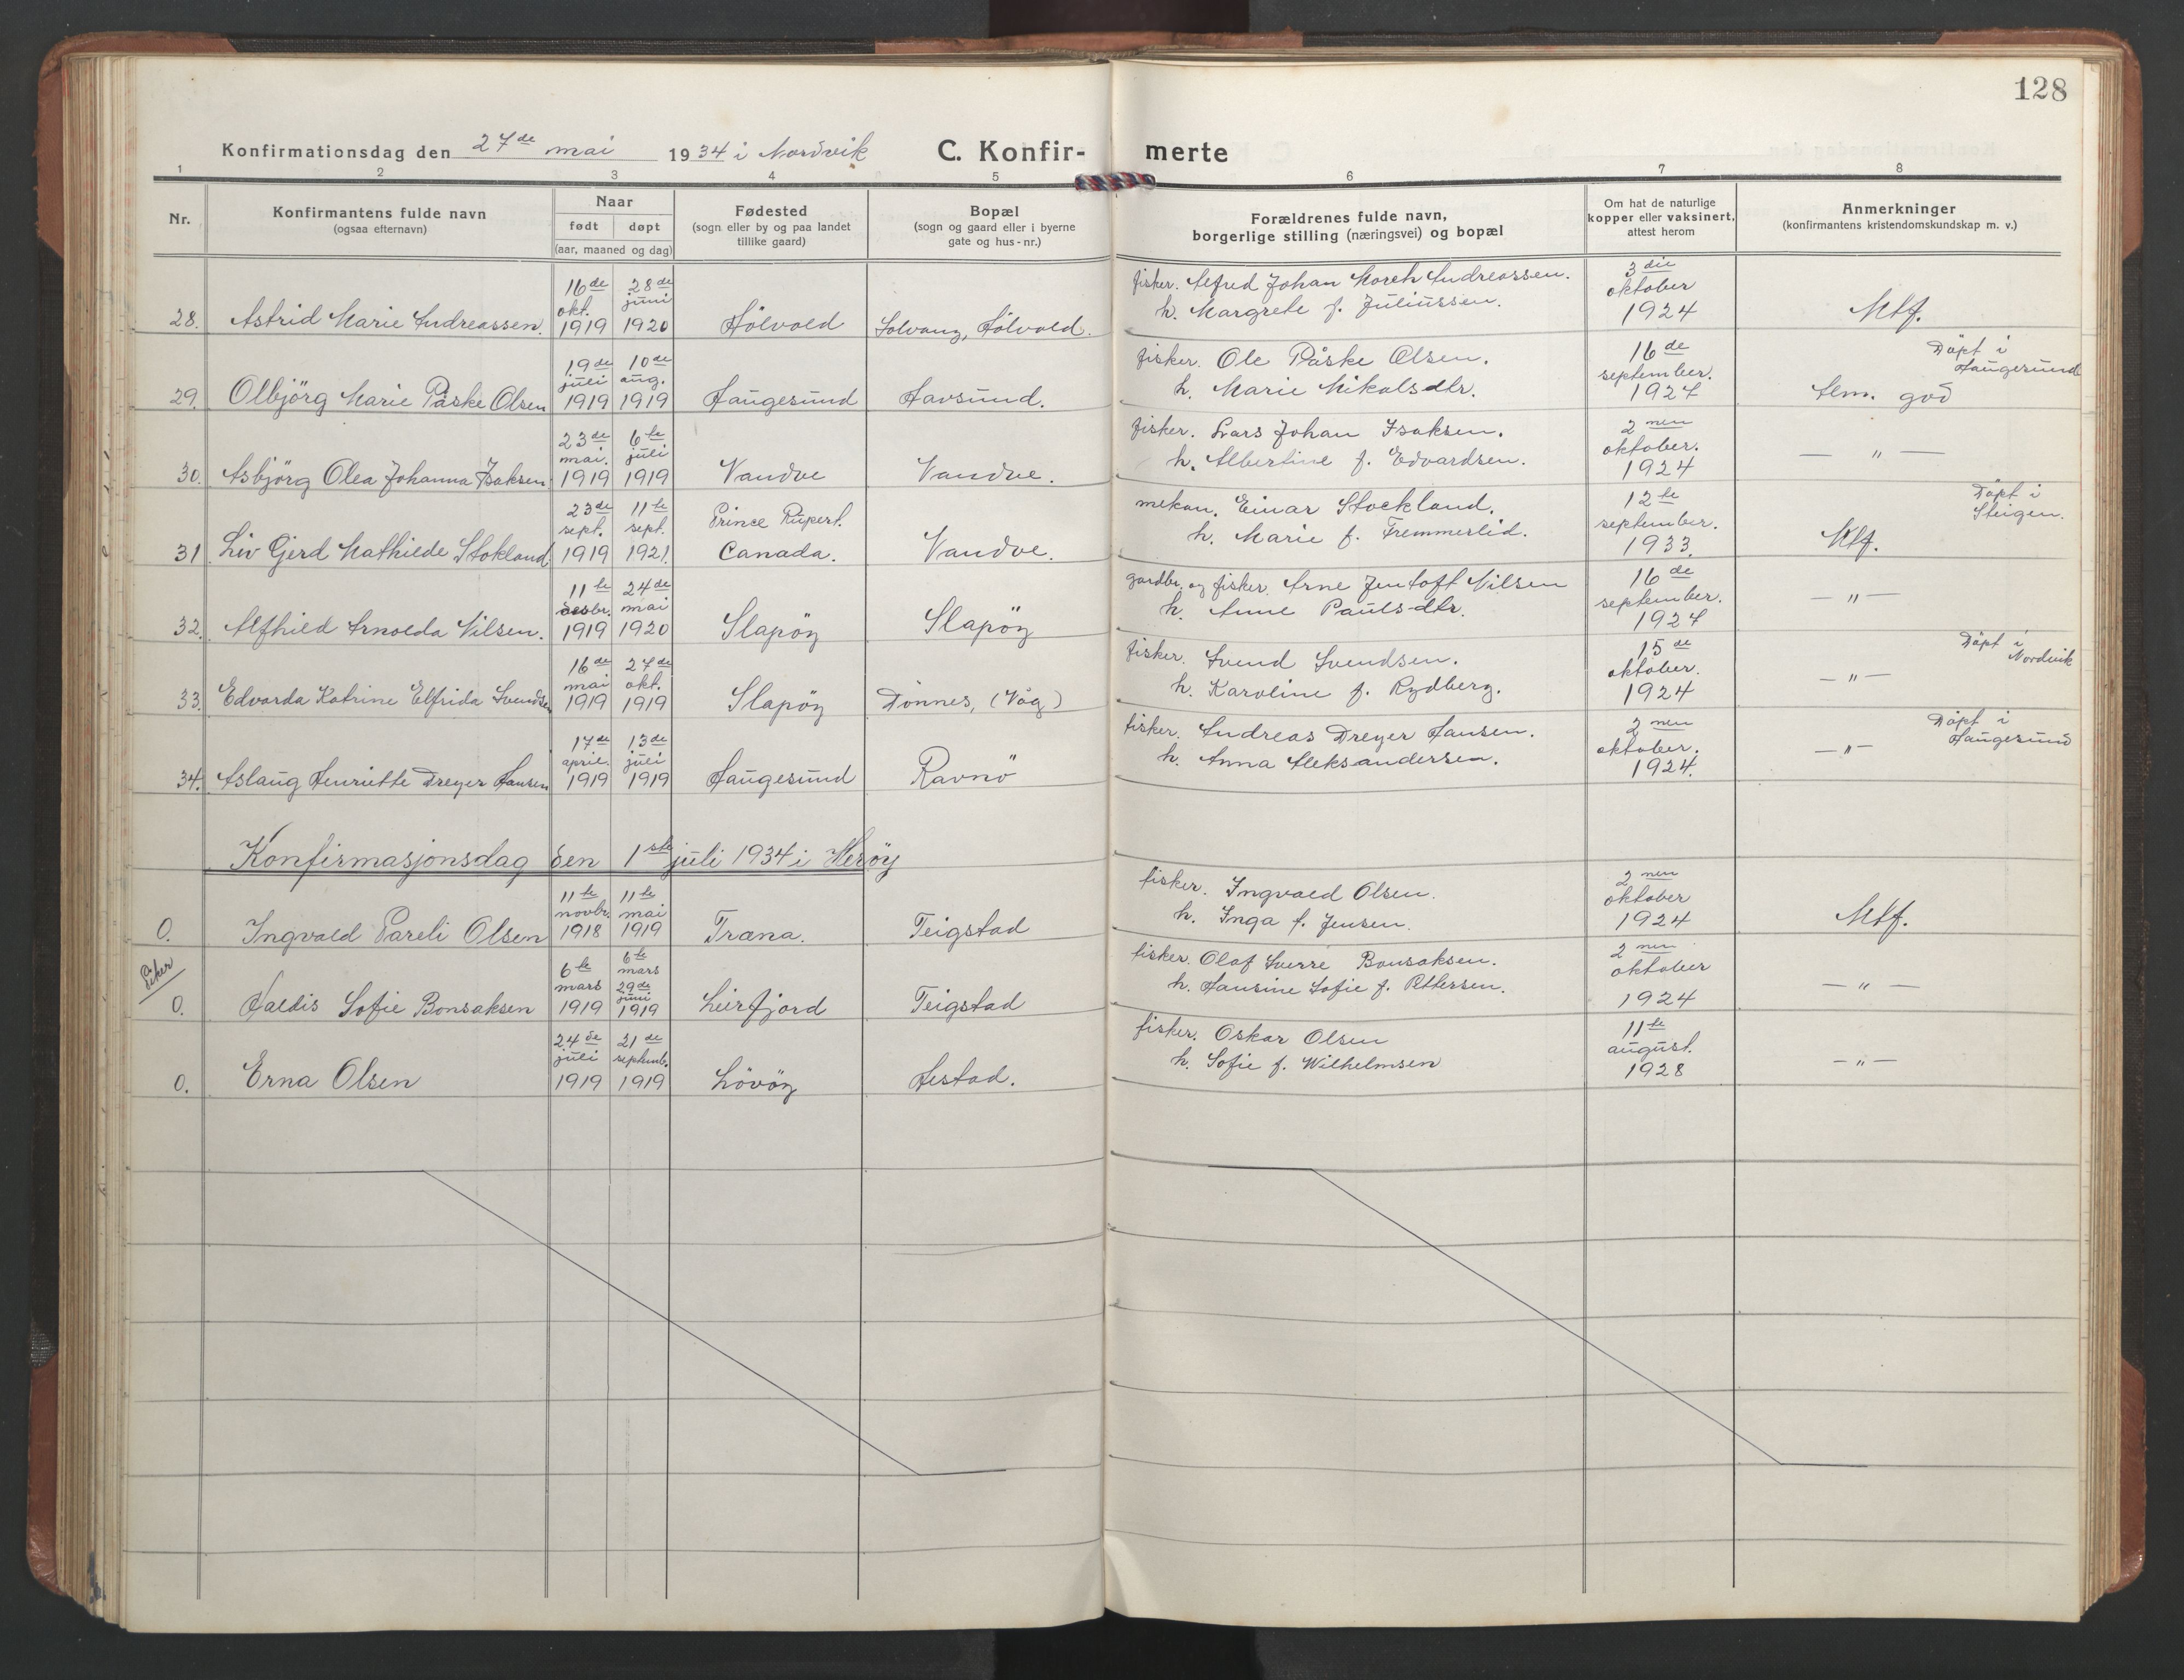 128
Konfirmationsdag den 27de mai 1934 i Nordvik C. Konfir- merte
1 2 3 4 5 6 7 8
Nr. Konfirmantens fulde navn (ogsaa efternavn) Naar født døpt (aar, maaned og dag) Fødested (sogn eller by og paa landet tillike gaard) Bopæl (sogn og gaard eller i byerne gate og hus-nr.) Forældrenes fulde navn, borgerlige stilling (næringsvei) og bopæl Om hat de naturlige kopper eller vaksinert, attest herom Anmerkninger (konfirmantens kristendomskundskap m. v.)
28. Astrid Marie Andreassen. 16de okt. 1919 28de juni 1920 Hölvold Solvang, Hölvold. fisker. Alfred Johan Morch Andreassen. h. Margrete f. Juliussen. 3die oktober 1924 Mtf.
29. Olbjörg Marie Påske Olsen 19de juli 1919 10de aug. 1919 Haugesund Havsund. fisker. Ole Påske Olsen. h. Marie Nikolsdtr. 16de september. 1924 Døpt i Haugesund god
30. Asbjörg Olea Johanna Isaksen. 23de mai. 1919 6te juli 1919 Vandve Vandve. fisker. Lars Johan Isaksen. h. Albertine f. Edvardsen. 2nen oktober. 1924 — " —
31 Liv Gjerd Mathilde Stokland 23de sept. 1919 11te sept. 1921. Prince Rupert. Canada. Vandve. mekan. Einar Stockland. h. Marie f. Fremmerlid. 12te september. 1933. Mtf. Døpt i Steigen.
32. Alfhild Arnolda Nilsen. 11te desbr. 1919 24de mai 1920 Slapöy Slapöy gardbr. og fisker. Arne Jentoft Nilsen h. Anne Pauls-dtr. 16de september. 1924 — " —
33. Edvarda Katrine Elfrida Svendsen 16de mai 1919 27de okt. 1919 Slapöy Dönnes, (Våg) fisker. Svend Svendsen. h. Karoline f. Rydberg. 15de oktober. 1924 — " — Döpt i Nordvik
34. Aslaug Henriette Dreyer Hansen 17de april. 1919 13de juli 1919 Haugesund Ravnö fisker. Andreas Dreyer Hansen. h. Anna Aleksandersen. 2nen oktober. 1924. — " — Döpt i Haugesund
Konfirmasjonsdag den 1ste juli 1934 i Heröy
0. Ingvald Pareli Olsen 11te novbr. 1918 11te mai 1919 Træna. Teigstad fisker. Ingvald Olsen. h. Inga f. Jensen. 2nen oktober 1924 Mtf.
0. Haldis Sofie Bonsaksen 6te mars 1919 6te mars 29de juni 1919 Leirfjord Teigstad fisker. Olaf Sverre Bonsaksen. h. Hansine Sofie f. Pettersen. 2nen oktober 1924 — " —
0. Erna Olsen 24de juli 1919 21de septembr. 1919 Lövöy Hestad. fisker. Oskar Olsen h. Sofie f. Wilhelmsen 11te august. 1928 — " —